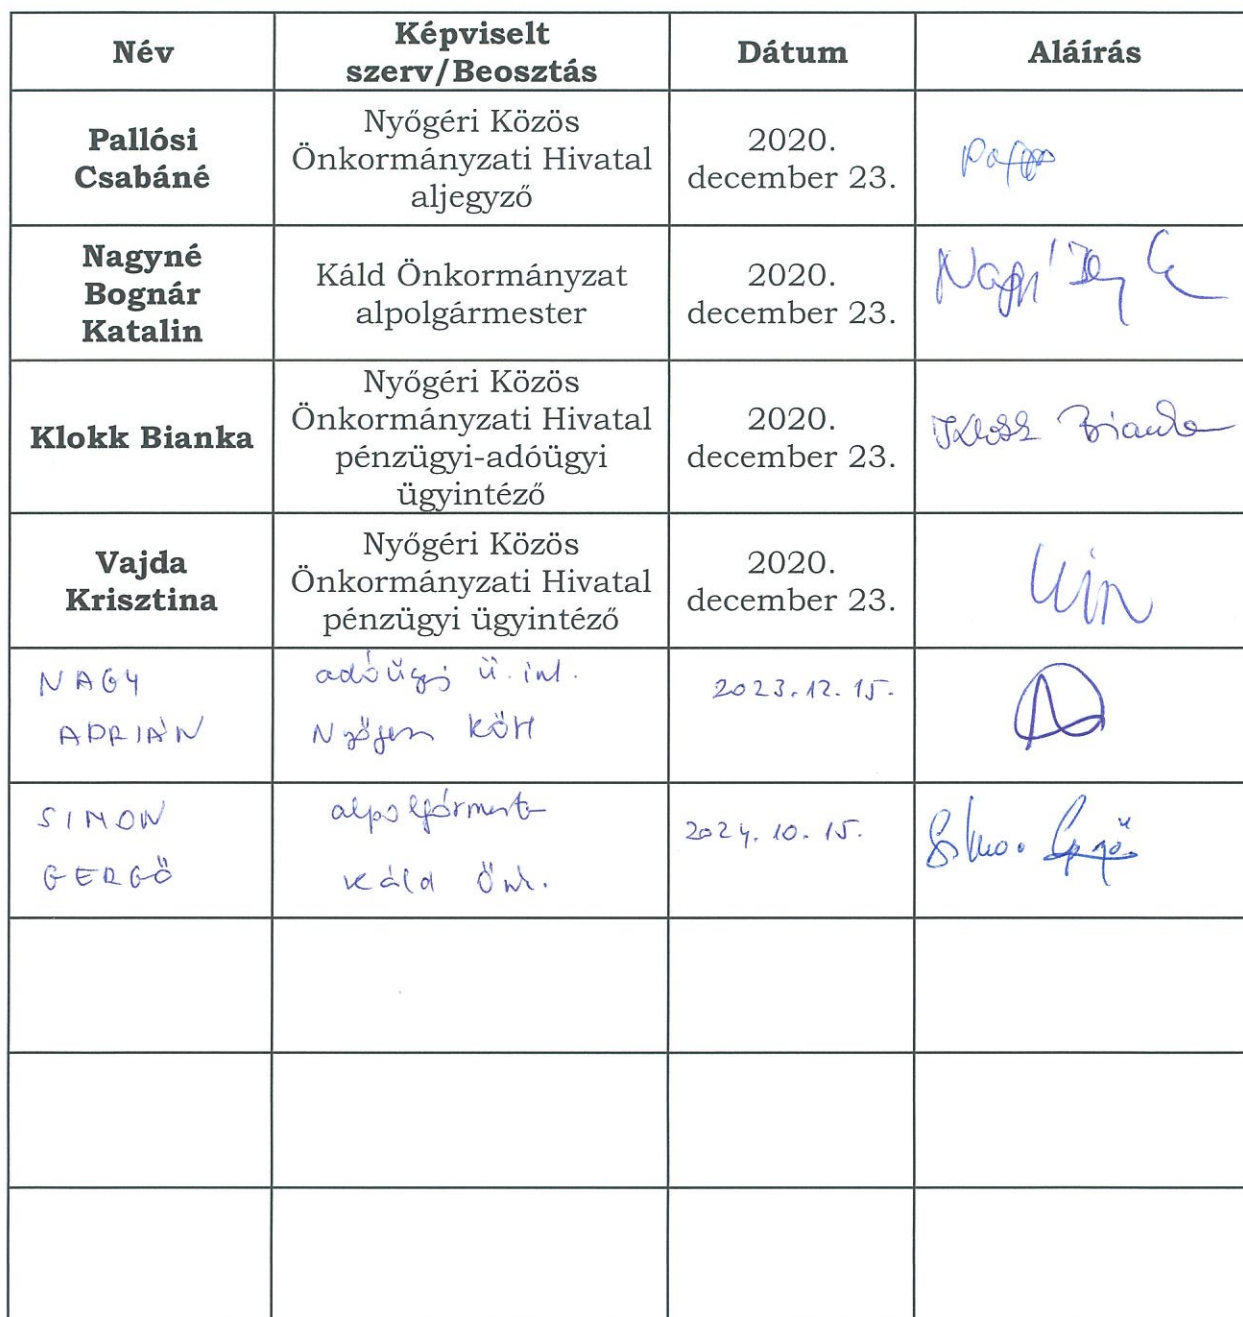 Név
Képviselt
szerv/Beosztás
Dátum
Aláírás
Pallósi
Csabáné
Nyőgéri Közös
Önkormányzati Hivatal
aljegyző
2020.
december 23.
Nagyné
Bognár
Katalin
Káld Önkormányzat
alpolgármester
2020.
december 23.
Klokk Bianka
Nyőgéri Közös
Önkormányzati Hivatal
pénzügyi-adóügyi
ügyintéző
2020.
december 23.
Klokk Bianka
Vajda
Krisztina
Nyőgéri Közös
Önkormányzati Hivatal
pénzügyi ügyintéző
2020.
december 23.
NAGY
ADRIÁN
adóügyi ü. int.
KÖH
2023.12.15.
SIMON
GERGŐ
alpolgármester
Káld Önk.
2024.10.15.
Simon Gergő